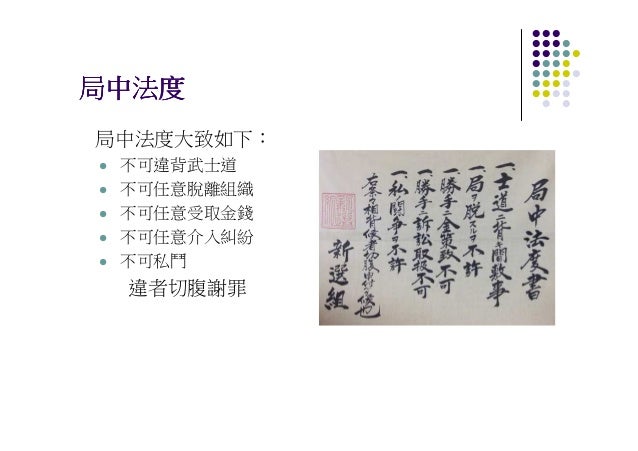 局中法度
局中法度大致如下：
不可違背武士道
不可任意脫離組織
不可任意受取金錢
不可任意介入糾紛
不可私鬥
違者切腹謝罪
局中法度書
一、士道ニ背キ間敷事
一、局ヲ脱スルヲ不許
一、勝手ニ金策致不可
一、勝手ニ訴訟取扱不可
一、私ノ闘争ヲ不許
右条々相背候者切腹申付ベク候也
新選組